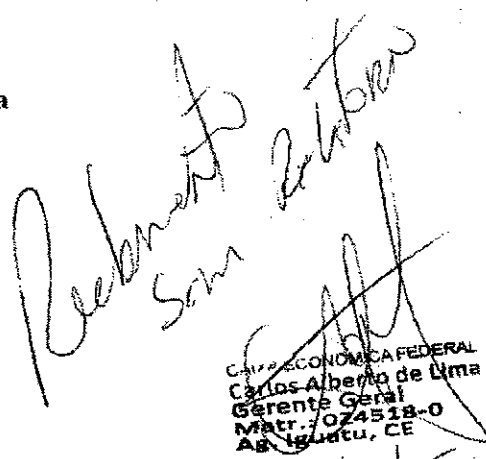 a
Recebimento
sem
CAIXA ECONOMICA FEDERAL
Carlos Alberto de Lima
Gerente Geral
Matr.: 024518-0
Ag. Iguatu, CE